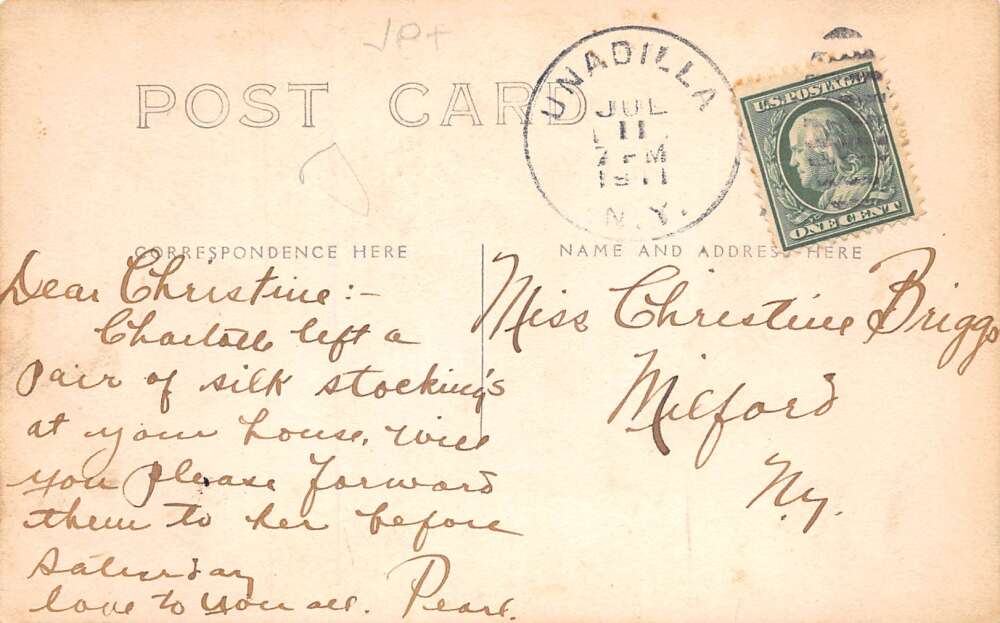 JP+
POST CARD
UNADILLA
JUL
11
7 PM
1911
N.Y.
U.S. POSTAGE
ONE CENT
CORRESPONDENCE HERE
NAME AND ADDRESS HERE
Dear Christine:-
Charlotte left a
pair of silk stocking's
at your house, will
you please forward
them to her before
Saturday
love to you all. Pearl.
Miss Christine Briggs
Milford
Ny.